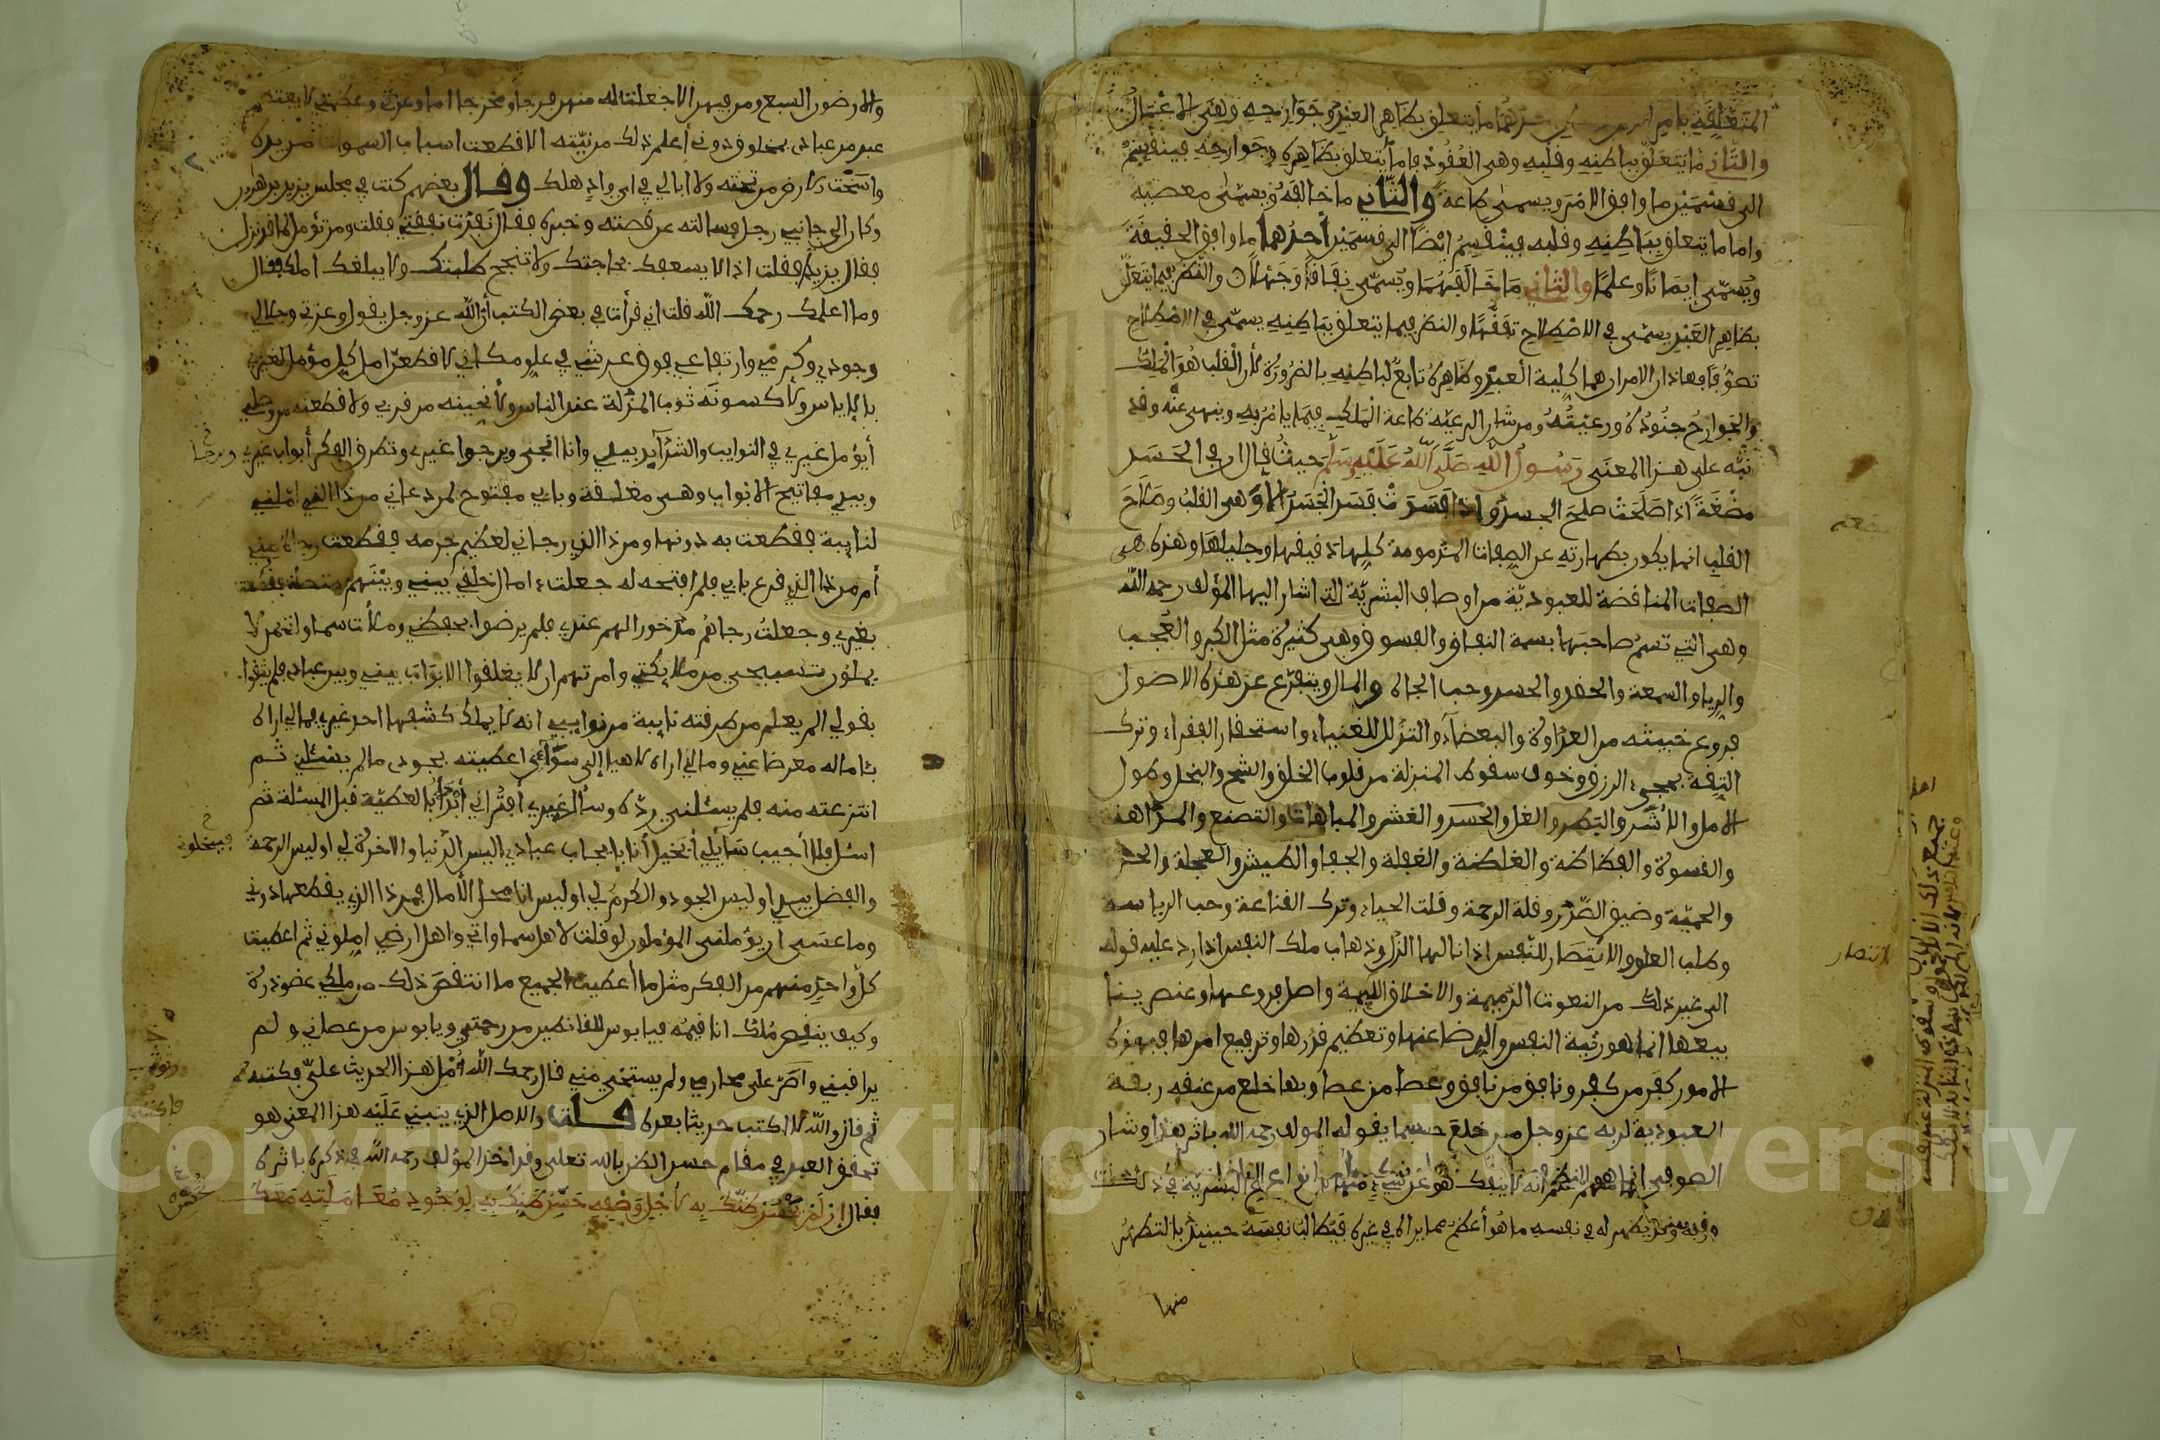 المتعلقة بامر
احدهما ما يتعلق بظاهر العبد وجوارحه وهي الاعمال
والثاني ما يتعلق بباطنه وقلبه وهي العقود فاما ما يتعلق بظاهره وجوارحه فينقسم
الى قسمين ما وافق الامر ويسمى طاعة والثاني ما خالفه ويسمى معصية
واما ما يتعلق بباطنه وقلبه فينقسم ايضا الى قسمين أحدهما ما وافق الحقيقة
ويسمى إيمانا وعلما والثاني ما خالفهما ويسمى نفاقا وجهلا والنظر فيما يتعلق
بظاهر العبد يسمى في الاصطلاح تفقها والنظر فيما يتعلق بباطنه يسمى في الاصطلاح
تصوفا فهاذان الامران هما كلية العبد وظاهره تابع لباطنه بالضرورة لأن القلب هو الملك
والجوارح جنوده ورعيته ومن شان الرعية طاعة الملك فيما يامر به وينهى عنه وقد
نبه على هذا المعنى رسول الله صلى الله عليه وسلم حيث قال ان في الجسد
مضغة اذا صلحت صلح الجسد واذا فسدت فسد الجسد الا وهي القلب وصلاح
القلب انما يكون بطهارته عن الصفات المذمومة كلها دقيقها وجليلها وهذه هي
الصفات المناقضة للعبودية من اوصاف البشرية التي اشار اليها المؤلف رحمه الله
وهي التي تسم صاحبها بسمة النفاق والفسوق وهي كثيرة مثل الكبر والعجب
والرياء والسمعة والحقد والحسد وحب الجاه والمال ويتفرع عن هذه الاصول
فروع خبيثه من العداوة والبغضاء والتذلل للاغنياء واستحقار الفقراء وترك
الثقة بمجيء الرزق وخوف سقوط المنزلة من قلوب الخلق والشح والبخل وطول
الامل والأشر والبطر والغل والحسد والغش والمباهات والتصنع والمداهنة
والقسوة والفظاظة والغلظة والغفلة والجفا والطيش والعجلة والحدة
والحمية وضيق الصدر وقلة الرحمة وقلت الحياء وترك القناعة وحب الرياسة
وطلب العلو والانتصار للنفس اذا نالها الذل وذهاب ملك النفس اذا رد عليه قوله
الى غير ذلك من النعوت الذميمة والاخلاق اللئيمة واصل فروعها وعنصر ينا
بيعها انما هو رؤية النفس والرضا عنها وتعظيم قدرها وترفيع امرها فبهذه
الامور كفر من كفر ونافق من نافق وعصا من عصا وبها خلع من عنقه ربقة
العبودية لربه عز وجل من خلع حسبما يقوله المولف رحمه الله باثر هذا وشان
الصوفي انما هو النظر
يظهر له في نفسه ما هو أعظم مما يراه في غيره فيطالب نفسه حينئذ بالتطهر
منها
انتصار
والارضون السبع ومن فيهن الا جعلت له منهن فرجا ومخرجا اما وعزتي وعظمتي لا يعتصم
عبد من عبادي بمخلوق دوني أعلم ذلك من نيته الا قطعت اسباب السموات من يده
واسخت الارض من تحته ولا ابالي في اي واد هلك وقال بعضهم كنت في مجلس يزيد بن هارون
وكان الى جانبي رجل وسالته عن قصته وخبره فقال نفذت نفقتي فقلت ومن تؤمل لما قد نزل
فقال يزيد فقلت اذا لا يسعفك بحاجتك ولا تنجح طلبتك ولا يبلغك املك فقال
وما اعلمك رحمك الله قلت اني قرأت في بعض الكتب أن الله عز وجل يقول وعزتي وجلالي
وجودي وكرمي وارتفاعي فوق عرشي في علو مكاني لاقطعن امل كل مؤمل لغيري
بالاياس ولأكسونه ثوب المذلة عند الناس ولأنحينه من قربي ولاقطعنه من وصلي
أيؤمل غيري في النوايب والشدآيد بيدي وانا الحي ويرجوا غيري وتطرق الفكر أبواب غيري
وبيدي مفاتيح الابواب وهي مغلقة وبابي مفتوح لمن دعاني من ذا الذي املني
لنايبة فقطعت به دونها ومن ذا الذي رجاني لعظيم جرمه فقطعت رجاءه مني
أم من ذا الذي قرع بابي فلم افتحه له جعلت امال خلقي بيني وبينهم متصلة فقطعت
بغيري وجعلت رجاهم مدخورا لهم عندي فلم يرضوا بحفظي وملأت سماواتي ممن لا
يملون تسبيحي من ملايكتي وامرتهم ان لا يغلقوا الابواب بيني وبين عبادي فلم يثقوا
بقولي الم يعلم من طرقته نايبة من نوايبي انه لا يملك كشفها احد غيري فمالي اراه
بثاماله معرضا عني ومالي اراه لاهيا إلى سوآئي اعطيته بجودي ما لم يسئلني ثم
انتزعته منه فلم يسئلني رده وسأل غيري أفتراني أبدأ بالعطية قبل المسئلة ثم
اسئل فلا أجيب سايلي أبخيل أنا فيبخلني عبادي اليس الدنيا والاخرة لي اوليس الرحمة
والفضل بيدي اوليس الجود والكرم لي اوليس انا محل الأمال فمن ذا الذي يقطعها دوني
وما عسى ان يؤملني المؤملون لو قلت لاهل سماواتي واهل ارضي املوني ثم اعطيت
كل واحد منهم من الفكر مثل ما أعطيت الجميع ما انتقص ذلك من ملكي عضو ذرة
وكيف ينقص ملك انا قيمه فيا بوس للقانطين من رحمتي ويا بوس من عصاني ولم
يراقبني واصر على محارمي ولم يستحي مني قال رحمك الله أمل هذا الحديث علي فكتبه
ثم قال والله لا اكتب حديثا بعده قلت والاصل الذي ينبني عليه هذا المعنى هو
تحقق العبد في مقام حسن الظن بالله تعالى وقد اخذ المؤلف رحمه الله في ذكره باثره
فقال إن لم تحسن ظنك به لأجل وصفه حسن ظنك به لوجود معاملته معك
Copyright © King Saud University